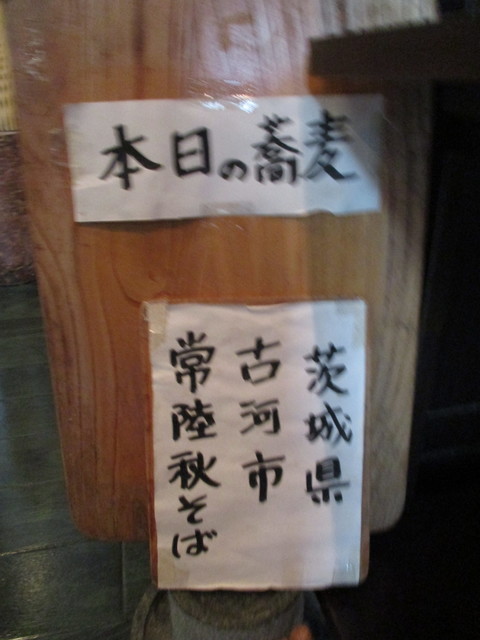 本日の蕎麦
茨城県
古河市
常陸秋そば